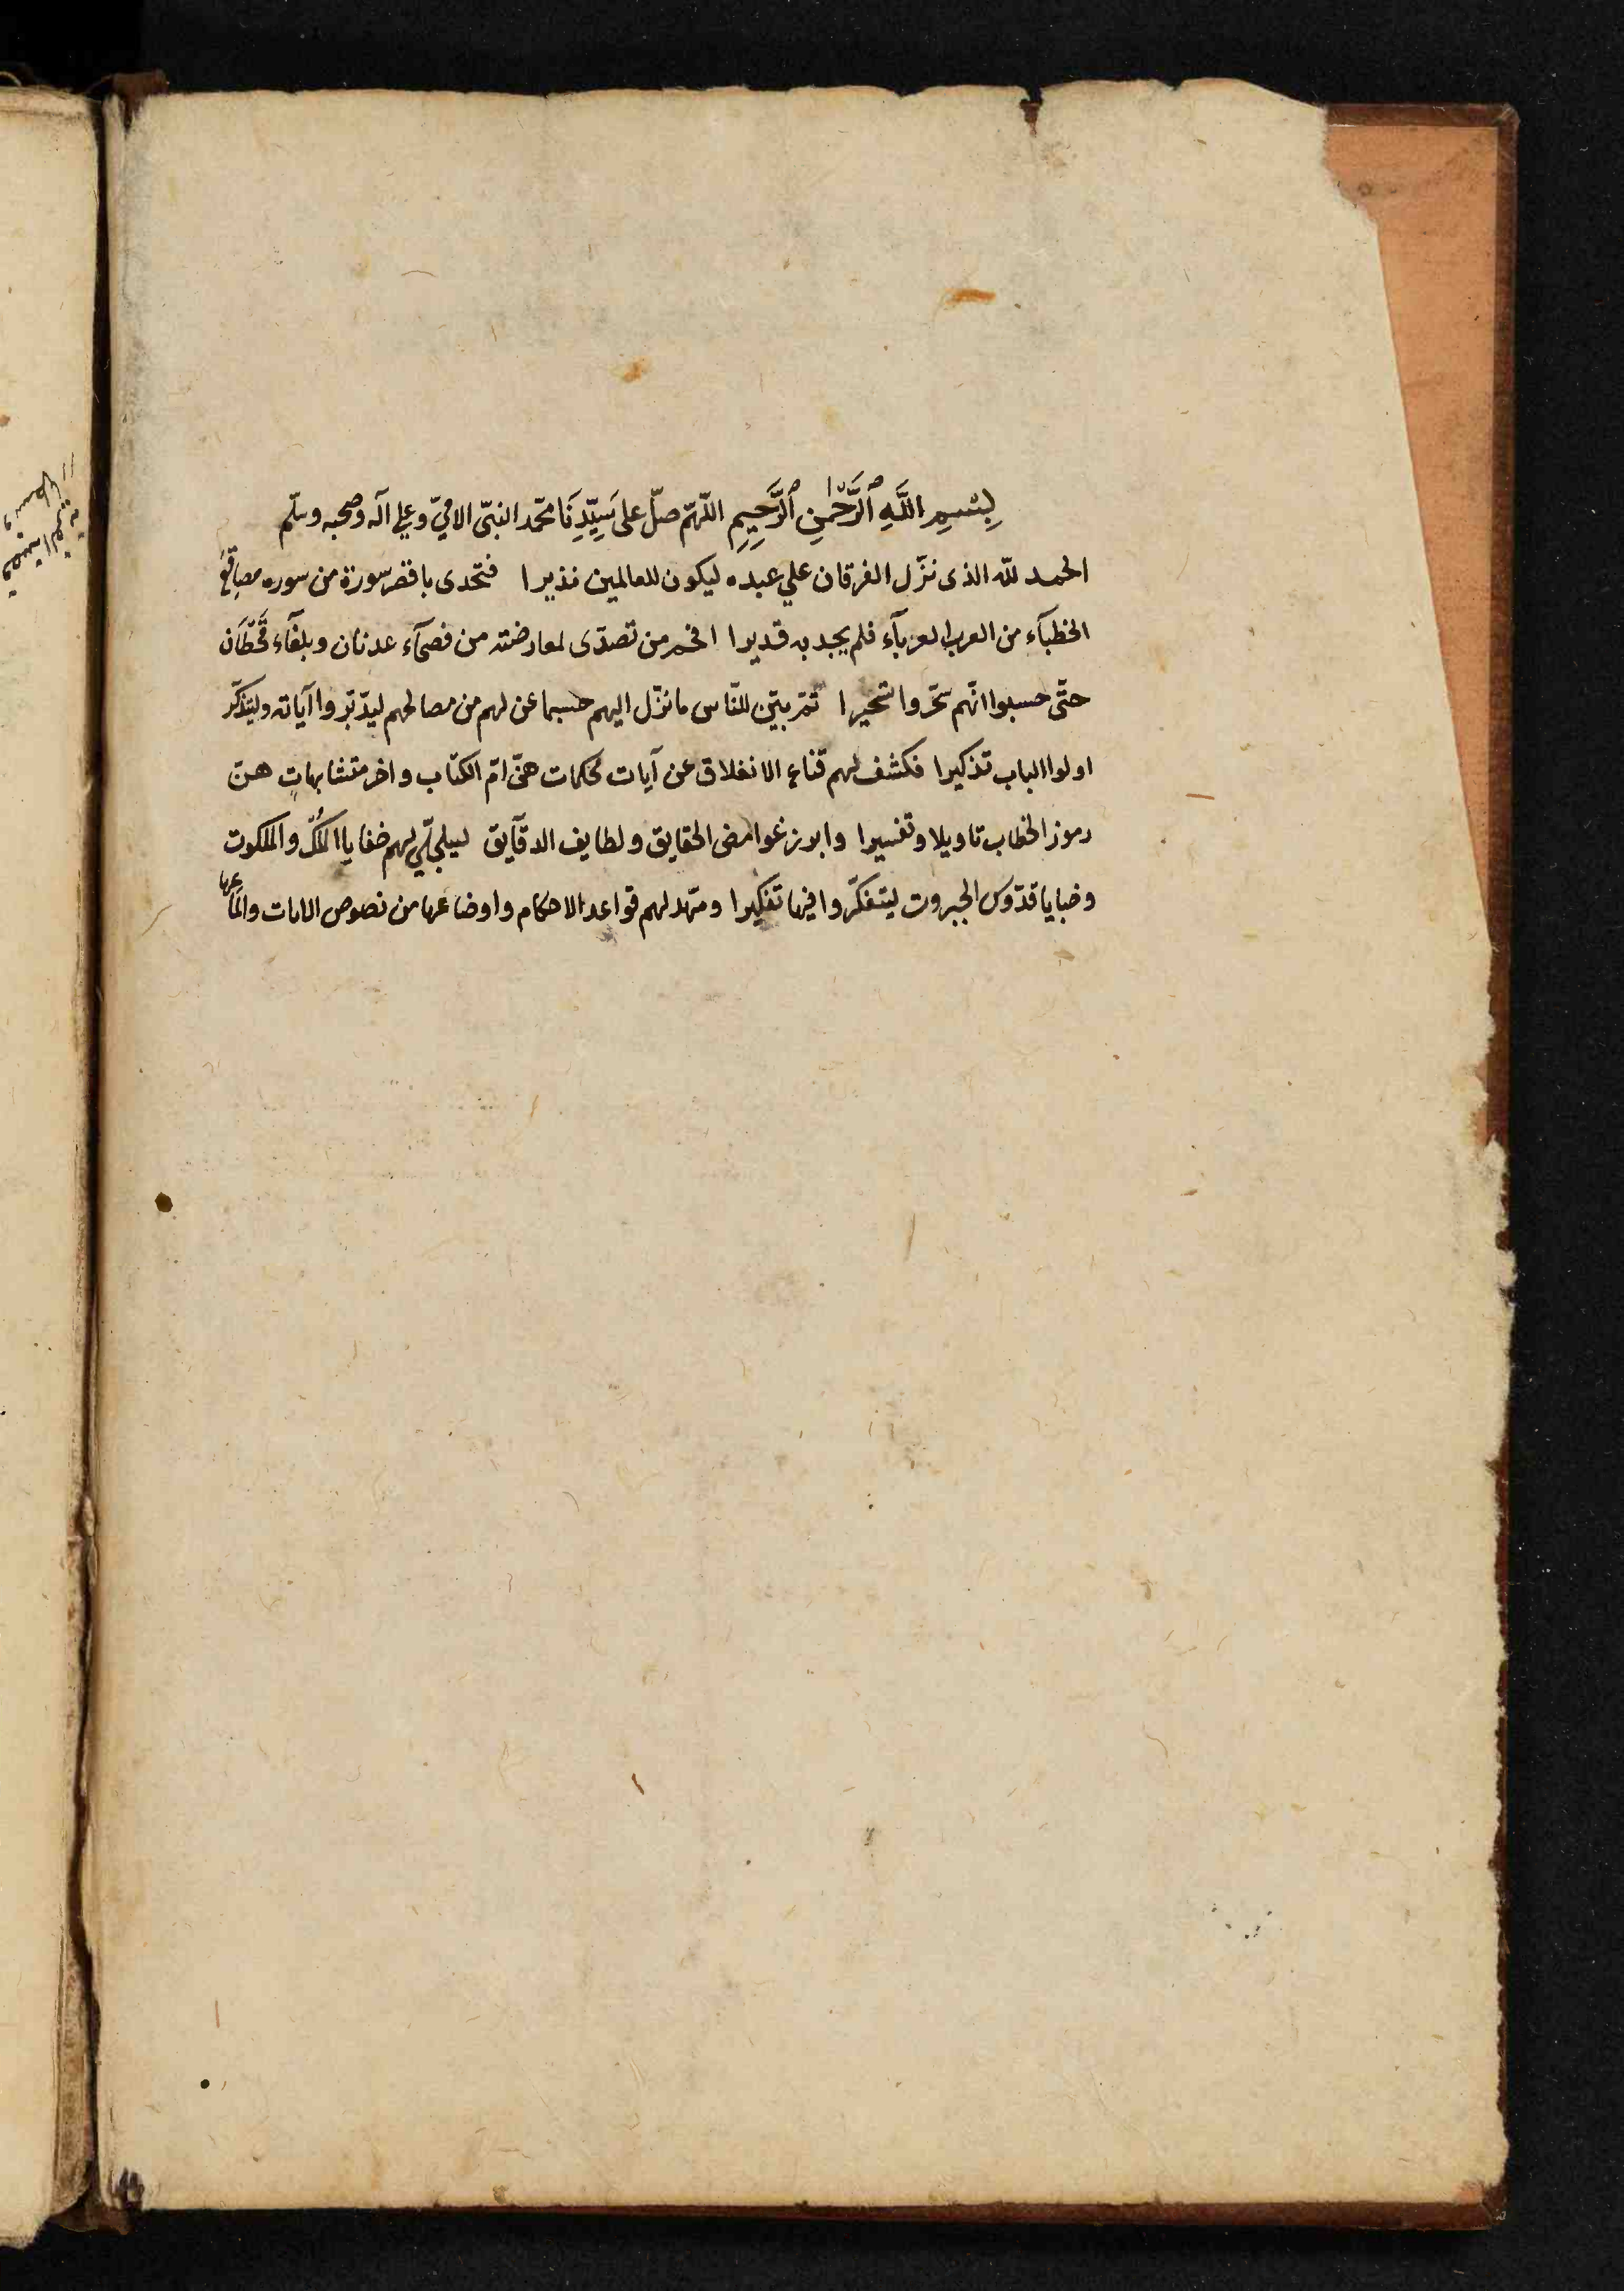 بِسْمِ اللَّهِ ٱلرَّحْمٰنِ ٱلرَّحِيمِ اللّهمّ صلّ على سَيِّدِنَا محمّد النبىّ الامّيّ وعلي آله وصحبه وسلّم
الحمد للّه الذى نزّل الفرقان علي عبده ليكون للعالمين نذيرا فتحدى باقصر سورة من سوره مصاقع
الخطبآء من العرب العربآء فلم يجد به قديرا افحم من تصدّى لمعارضته من فصحآء عدنان وبلغآء قَحْطَان
حتّى حسبوا انّهم سحّروا تسحيرا ثمّ بيّن للنّاس ما نزّل اليهم حسبما عن لهم من مصالحهم ليدّبّروا آياته وليتذكّر
اولوا الباب تذكيرا فكشف لهم قناع الانغلاق عن آيات محكمات هنّ امّ الكتاب واخر متشابهاتٍ هنّ
رموز الخطاب تاويلا وتفسيرا وابرز غوامض الحقايق ولطايف الدقآيق ليجلّي لهم خفايا المُلك والملكوت
وخبايا قدّوس الجبروت ليتفكّروا فيها تفكيرا ومهّد لهم قواعد الاحكام واوضاعها من نصوص الايات والماعها